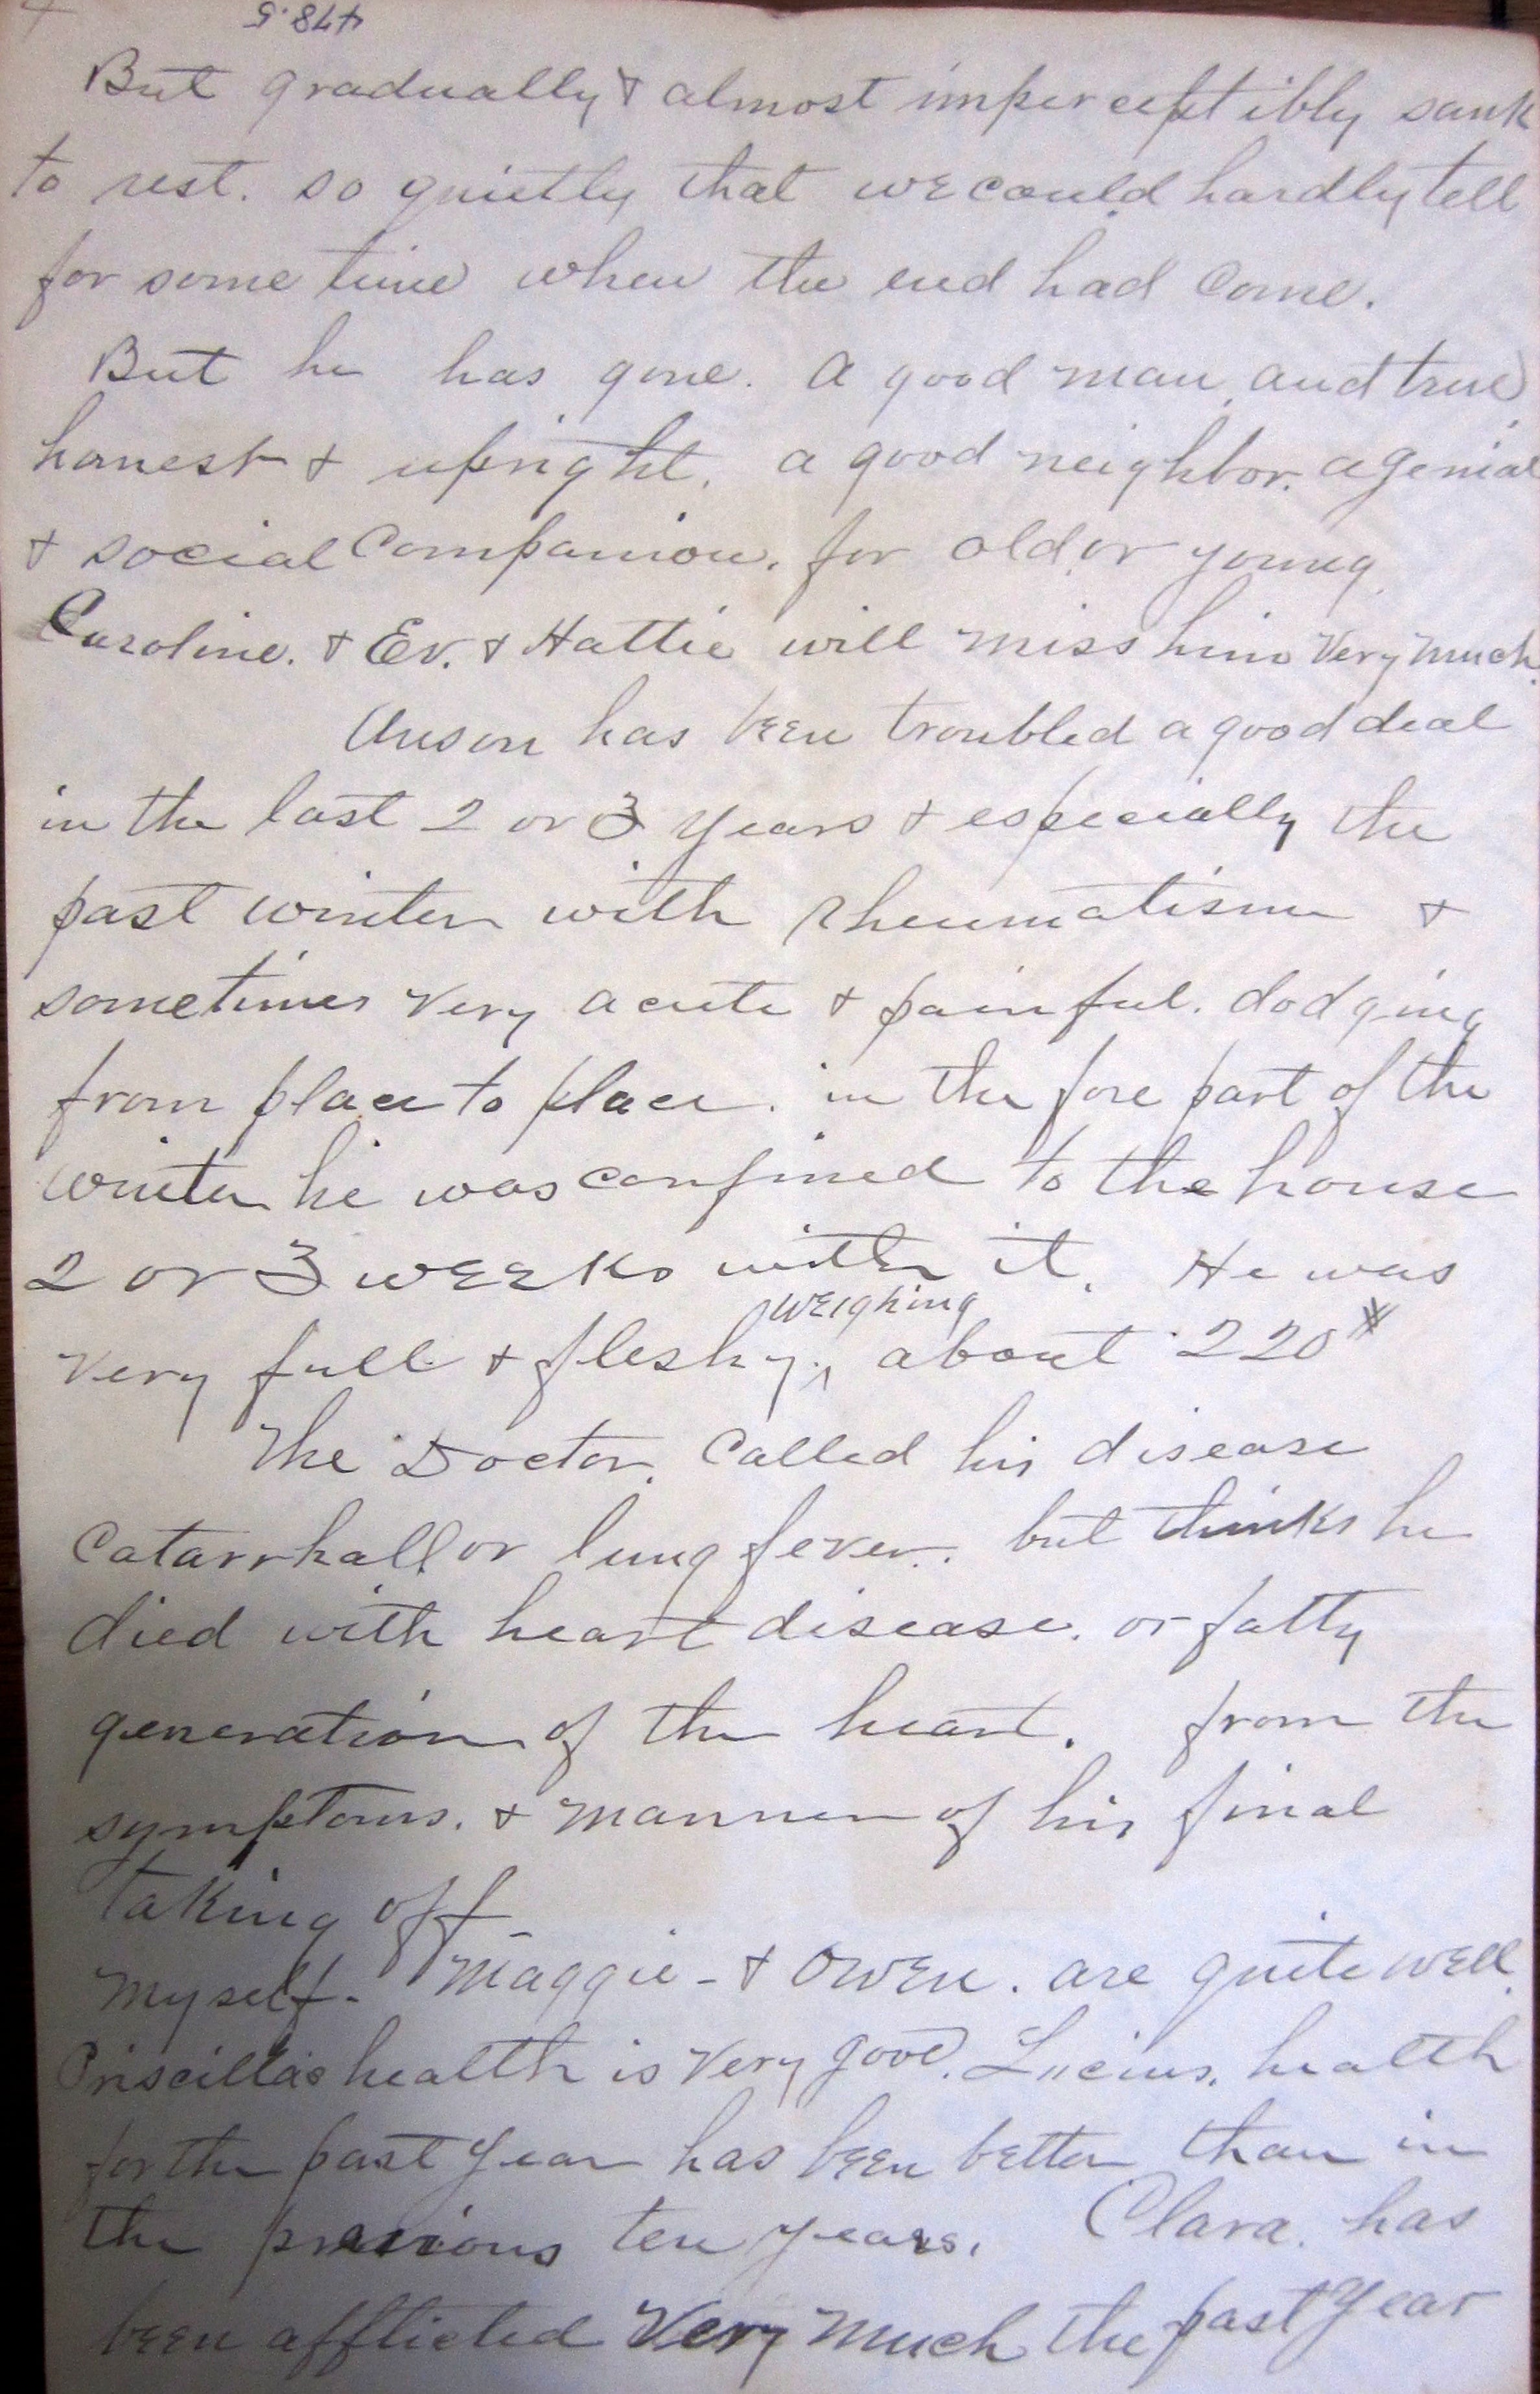 478.5
But gradually & almost imperceptibly sank
to rest. so quietly that we could hardly tell
for some time when the end had come.
But he has gone. a good man and true
honest & upright. a good neighbor. a genial
& social companion. for old or young
Caroline. & Ev. & Hattie will miss him very much.
Anson has been troubled a good deal
in the last 2 or 3 years & especially the
past winter with rheumatism &
sometimes very acute & painful. dodging
from place to place. in the fore part of the
winter he was confined to the house
2 or 3 weeks with it. He was
weighing
very full & fleshy. ^ about 220#
The Doctor. called his disease
Catarrhall or lung fever. but thinks he
died with heart disease. or fatty
generation of the heart. from the
symptoms. & manner of his final
taking off -
Myself - Maggie - & Owen. are quite well.
Priscilla's health is very good. Lucius. health
for the past year has been better than in
the previous ten years. Clara. has
been afflicted very much the past year